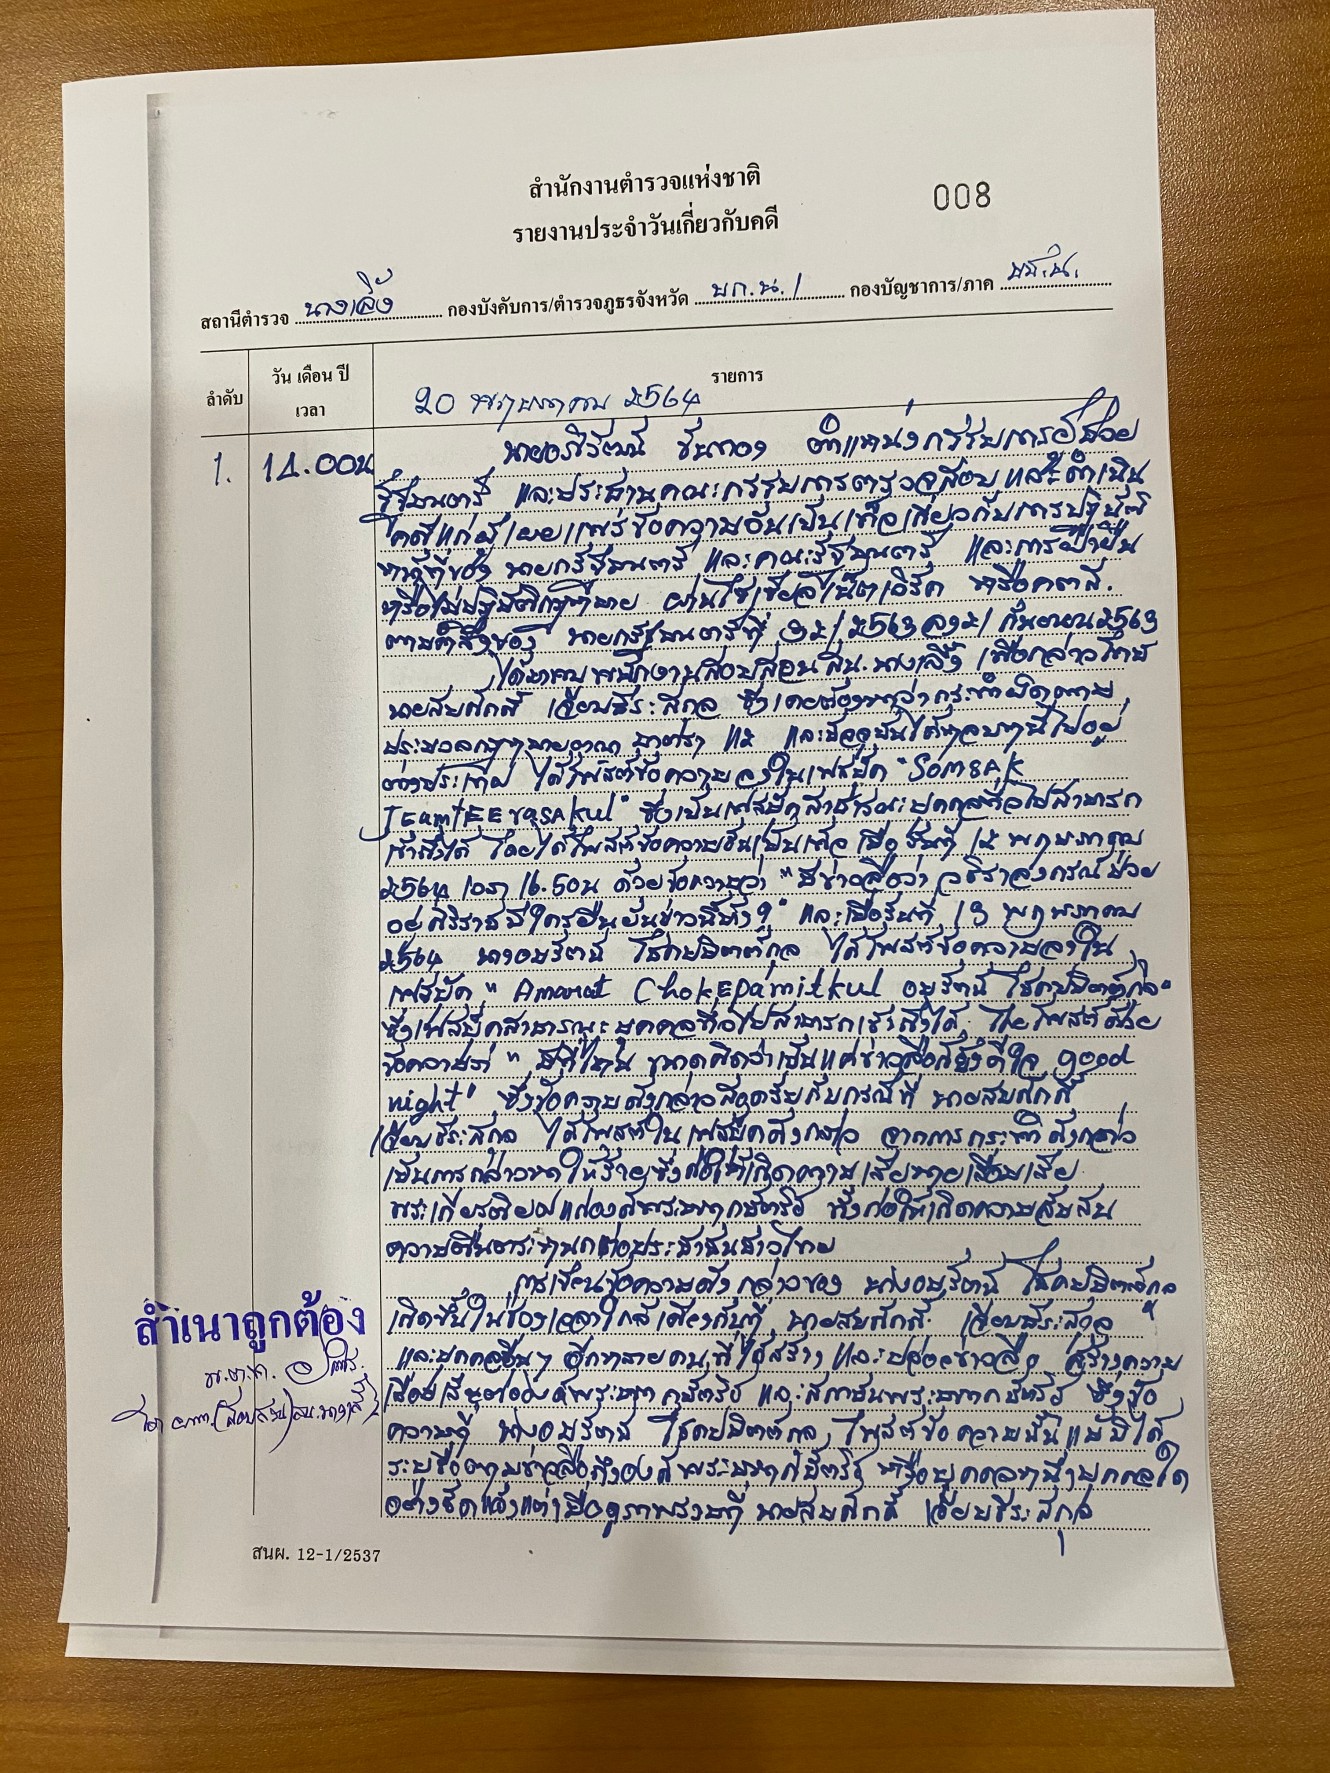 สำนักงานตำรวจแห่งชาติ
008
รายงานประจำวันเกี่ยวกับคดี
สถานีตำรวจ นางเลิ้ง กองบังคับการ/ตำรวจภูธรจังหวัด บก.น.1 กองบัญชาการ/ภาค บช.น.
ลำดับ วัน เดือน ปี เวลา รายการ
20 พฤษภาคม 2564
1. 14.00น นายอภิวัฒน์ ขันทอง ตำแหน่งกรรมการผู้ช่วย
รัฐมนตรี และประธานคณะกรรมการตรวจสอบและดำเนิน
คดีแก่ผู้เผยแพร่ข้อความอันเป็นเท็จเกี่ยวกับการปฏิบัติ
หน้าที่ของ นายกรัฐมนตรี และคณะรัฐมนตรี และการฝ่าฝืน
หรือไม่ปฏิบัติกฎหมาย ผ่านโซเชียลเน็ตเวิร์ค หรือคตส.
ตามคำสั่งของ นายกรัฐมนตรีที่ /2563 ลง 21 กันยายน 2563
ได้มาพบพนักงานสอบสวนสน.นางเลิ้ง เพื่อกล่าวโทษ
นายสมศักดิ์ เจียมธีระสกุล ซึ่งเคยต้องหาว่ากระทำผิดตาม
ประมวลกฎหมายอาญา มาตรา 112 และปัจจุบันได้หลบหนีไปอยู่
ต่างประเทศ ได้โพสต์ข้อความลงในเฟสบุ๊ค "Somsak
JeamTEErasakul" ซึ่งเป็นเฟสบุ๊คสาธารณะบุคคลทั่วไปสามารถ
เข้าถึงได้ โดยได้โพสต์ข้อความอันเป็นเท็จ เมื่อวันที่ 12 พฤษภาคม
2564 เวลา 16.50น ด้วยข้อความว่า "มีข่าวลือว่า วชิราลงกรณ์ป่วย
อยู่ศิริราช มีใครยืนยันข่าวนี้มั้ง?" และเมื่อวันที่ 13 พฤษภาคม
2564 นางอมรัตน์ โชคปมิตต์กุล ได้โพสต์ข้อความลงใน
เฟสบุ๊ค "Amarat Chokepamitkul อมรัตน์ โชคปมิตต์กุล"
ซึ่งเฟสบุ๊คสาธารณะบุคคลทั่วไปสามารถเข้าถึงได้ โดยโพสต์ด้วย
ข้อความว่า " ขนาดคิดว่าเป็นแค่ข่าวลือก็ยังดีใจ good
night" ซึ่งข้อความดังกล่าวสอดรับกับกรณีที่ นายสมศักดิ์
เจียมธีระสกุล ได้โพสต์ในเฟสบุ๊คดังกล่าว จากการกระทำดังกล่าว
เป็นการกล่าวหาให้ร้ายซึ่งก่อให้เกิดความเสียหายเสื่อมเสีย
พระเกียรติยศแก่องค์พระมหากษัตริย์ ทั้งก่อให้เกิดความสับสน
ความตื่นตระหนกต่อประชาชนชาวไทย
การเขียนข้อความดังกล่าวของ นางอมรัตน์ โชคปมิตต์กุล
เกิดขึ้นในช่วงเวลาใกล้เคียงกันที่ นายสมศักดิ์ เจียมธีระสกุล
และบุคคลอื่นๆ อีกหลายคนที่ได้สร้าง และปล่อยข่าวลือ สร้างความ
เสื่อมเสียต่อองค์พระมหากษัตริย์ และสถาบันพระมหากษัตริย์ ซึ่งข้อ
ความที่ นางอมรัตน์ โชคปมิตต์กุล โพสต์ข้อความนั้นแม้มิได้
ระบุชื่อตามข่าวลือถึงองค์พระมหากษัตริย์ หรือบุคคลหนึ่งบุคคลใด
อย่างชัดแจ้งแต่เมื่อดูภาพรวมที่ นายสมศักดิ์ เจียมธีระสกุล
สำเนาถูกต้อง
สนผ. 12-1/2537